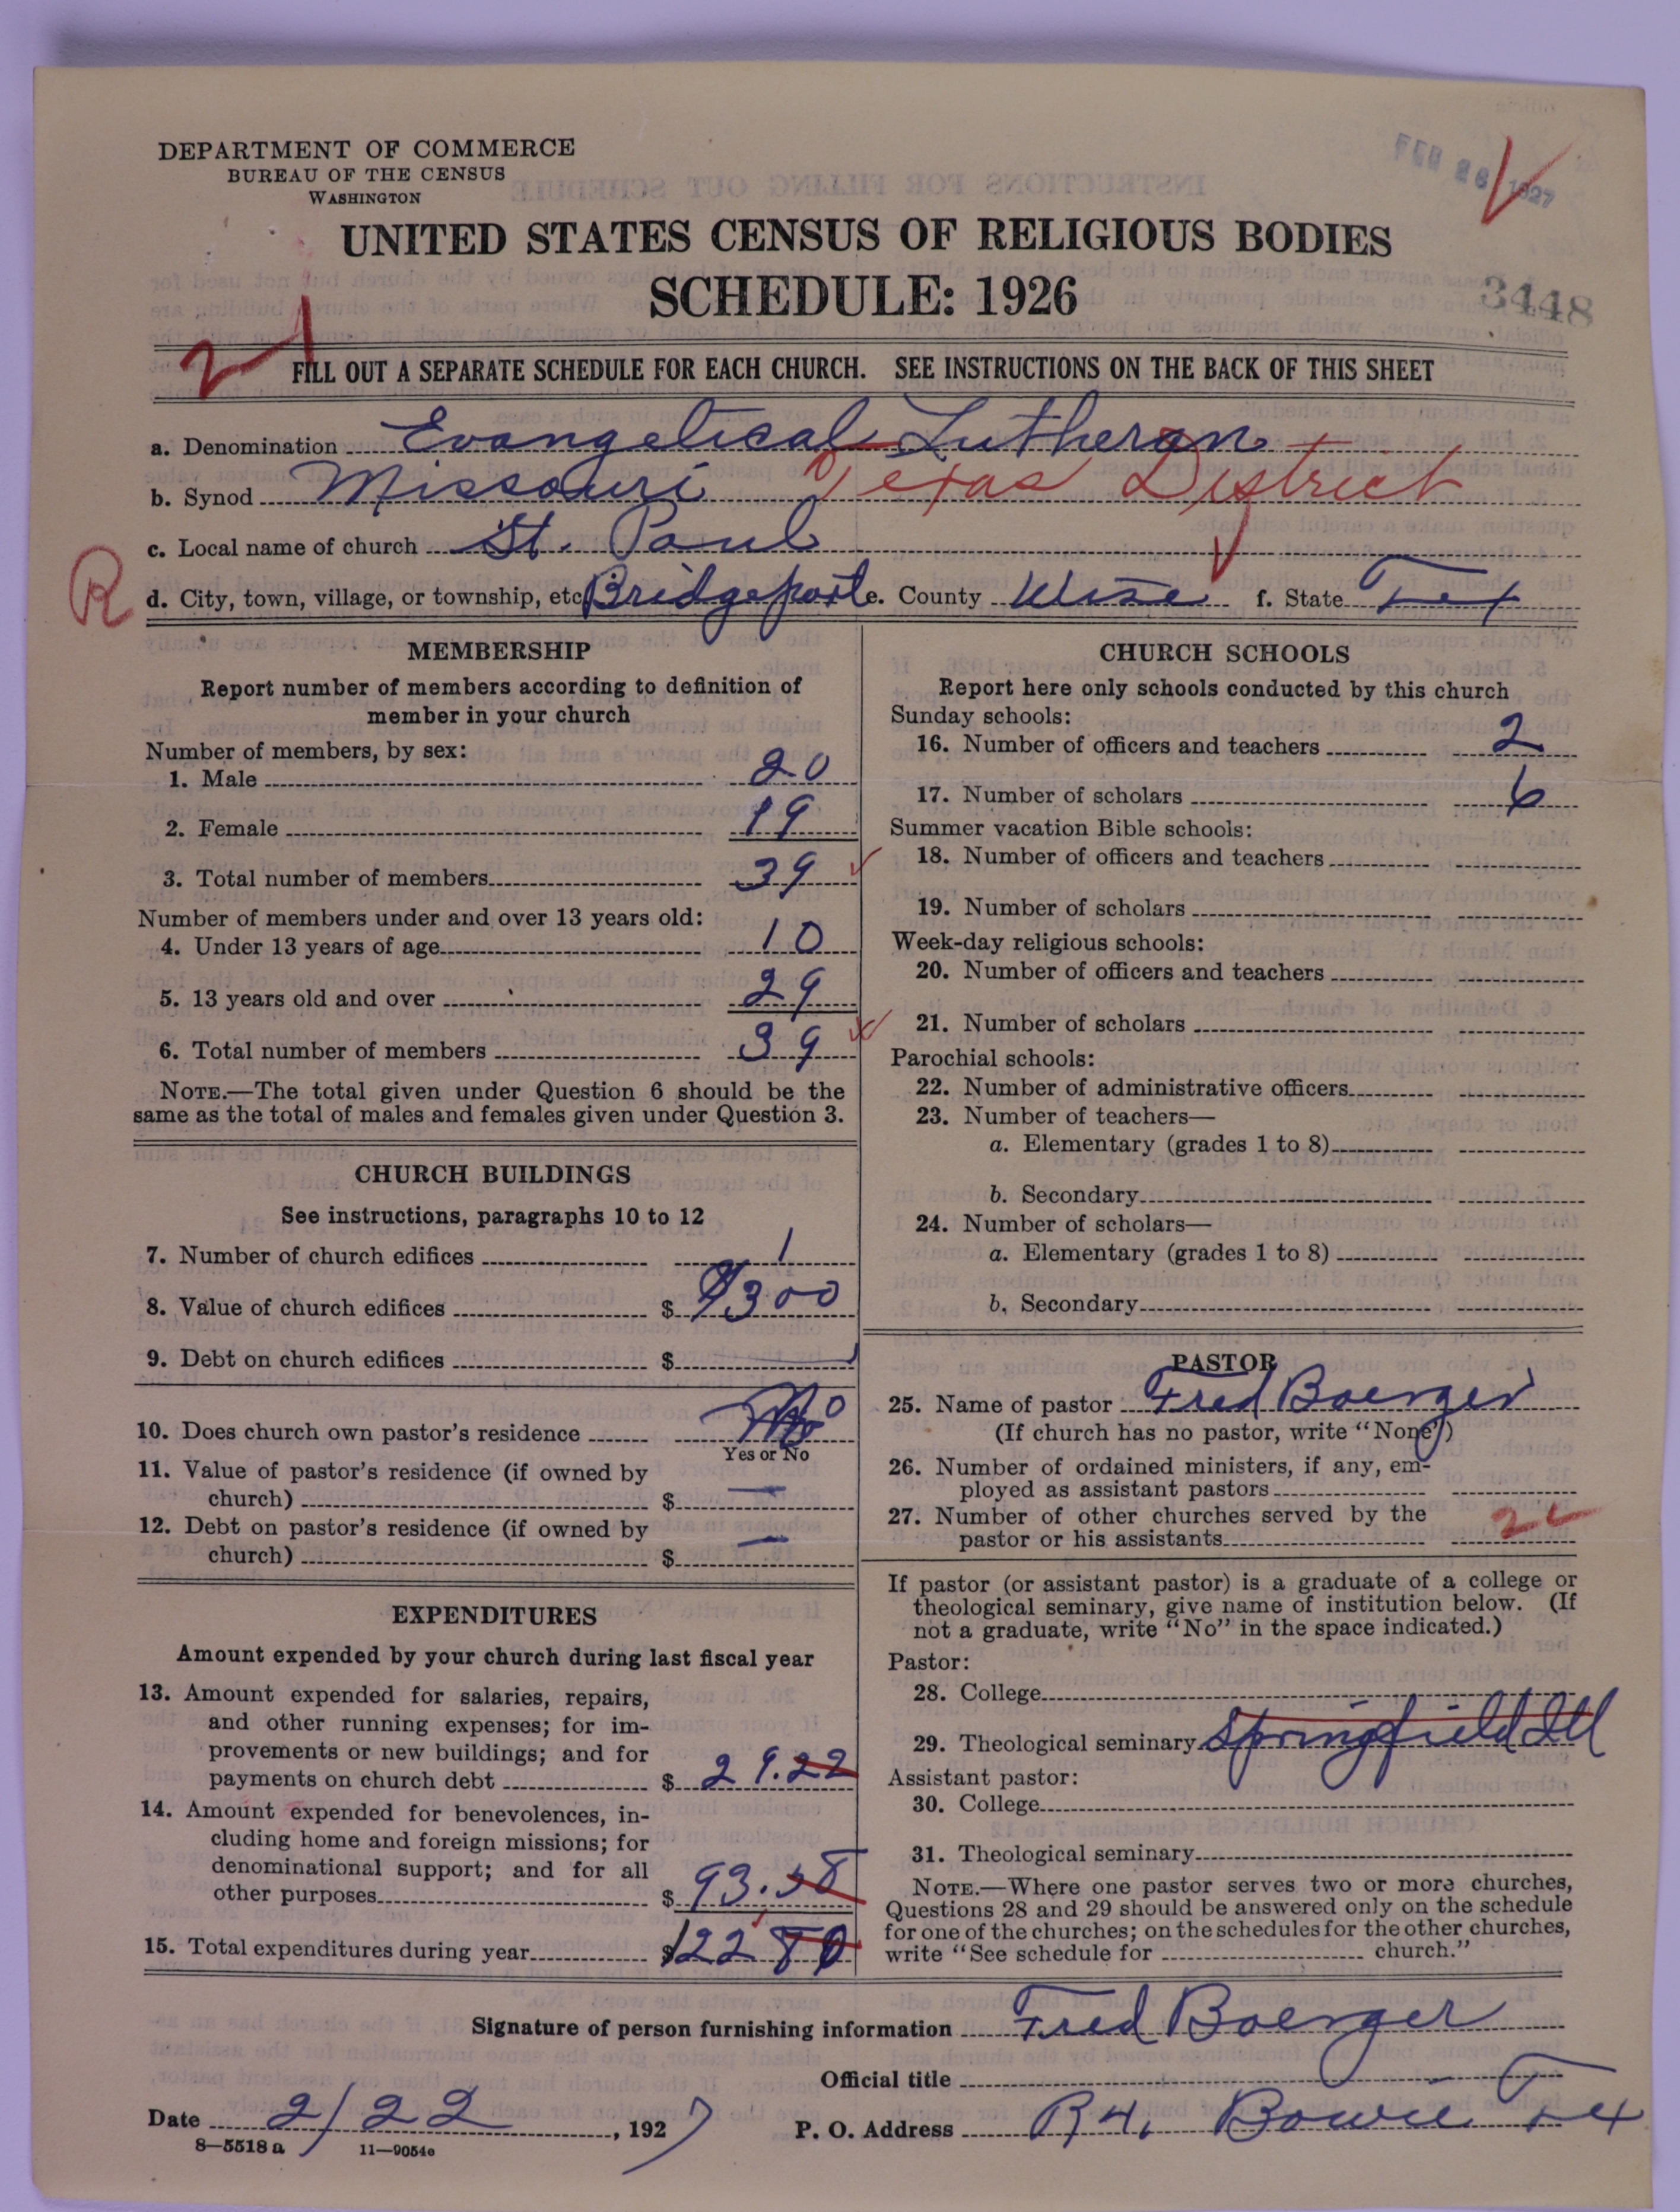 DEPARTMENT OF COMMERCE
BUREAU OF THE CENSUS
WASHINGTON
FEB 26 1927
UNITED STATES CENSUS OF RELIGIOUS BODIES
SCHEDULE: 1926
3448
2
FILL OUT A SEPARATE SCHEDULE FOR EACH CHURCH. SEE INSTRUCTIONS ON THE BACK OF THIS SHEET
a. Denomination Evangelical Lutheran
b. Synod Missouri Texas District
c. Local name of church St. Paul
R
d. City, town, village, or township, etc Bridgeport e. County Wise f. State Tex
MEMBERSHIP
Report number of members according to definition of
member in your church
Number of members, by sex:
1. Male 20
2. Female 19
3. Total number of members 39
Number of members under and over 13 years old:
4. Under 13 years of age 10
5. 13 years old and over 29
6. Total number of members 39
NOTE.—The total given under Question 6 should be the
same as the total of males and females given under Question 3.
CHURCH BUILDINGS
See instructions, paragraphs 10 to 12
7. Number of church edifices 1
8. Value of church edifices $ 300
9. Debt on church edifices $
10. Does church own pastor's residence No
Yes or No
11. Value of pastor's residence (if owned by
church) $ —
12. Debt on pastor's residence (if owned by
church) $ —
EXPENDITURES
Amount expended by your church during last fiscal year
13. Amount expended for salaries, repairs,
and other running expenses; for im-
provements or new buildings; and for
payments on church debt $ 29.22
14. Amount expended for benevolences, in-
cluding home and foreign missions; for
denominational support; and for all
other purposes $ 93.58
15. Total expenditures during year $122 80
CHURCH SCHOOLS
Report here only schools conducted by this church
Sunday schools:
16. Number of officers and teachers 2
17. Number of scholars 6
Summer vacation Bible schools:
18. Number of officers and teachers
19. Number of scholars
Week-day religious schools:
20. Number of officers and teachers
21. Number of scholars
Parochial schools:
22. Number of administrative officers
23. Number of teachers—
a. Elementary (grades 1 to 8)
b. Secondary
24. Number of scholars—
a. Elementary (grades 1 to 8)
b. Secondary
PASTOR
25. Name of pastor Fred Boerger
(If church has no pastor, write "None")
26. Number of ordained ministers, if any, em-
ployed as assistant pastors
27. Number of other churches served by the
pastor or his assistants
If pastor (or assistant pastor) is a graduate of a college or
theological seminary, give name of institution below. (If
not a graduate, write "No" in the space indicated.)
Pastor:
28. College
29. Theological seminary Springfield Ill
Assistant pastor:
30. College
31. Theological seminary
NOTE.—Where one pastor serves two or more churches,
Questions 28 and 29 should be answered only on the schedule
for one of the churches; on the schedules for the other churches,
write "See schedule for church."
Signature of person furnishing information Fred Boerger
Official title
Date 2/22, 1927 P. O. Address R 4, Bowie Tex
8—5518 a 11—9054e